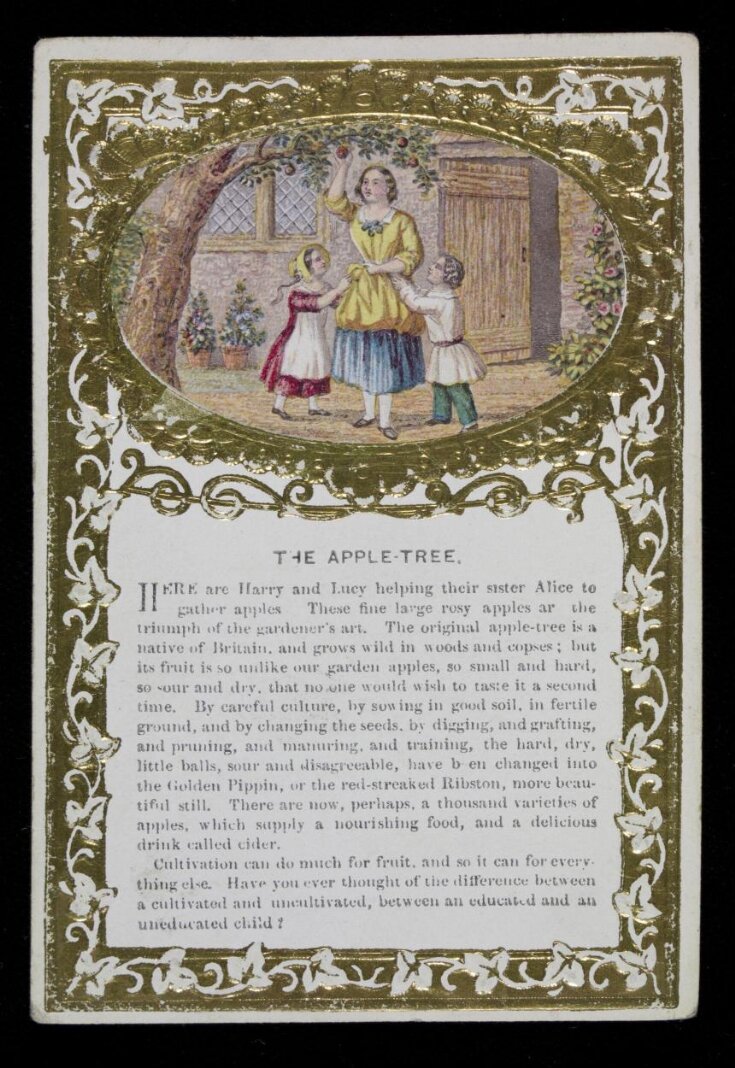 THE APPLE-TREE.
HERE are Harry and Lucy helping their sister Alice to
gather apples These fine large rosy apples ar the
triumph of the gardener's art. The original apple-tree is a
native of Britain, and grows wild in woods and copses; but
its fruit is so unlike our garden apples, so small and hard,
so sour and dry, that no one would wish to taste it a second
time. By careful culture, by sowing in good soil, in fertile
ground, and by changing the seeds, by digging, and grafting,
and pruning, and manuring, and training, the hard, dry,
little balls, sour and disagreeable, have b en changed into
the Golden Pippin, or the red-streaked Ribston, more beau-
tiful still. There are now, perhaps, a thousand varieties of
apples, which supply a nourishing food, and a delicious
drink called cider.
Cultivation can do much for fruit, and so it can for every-
thing else. Have you ever thought of the difference between
a cultivated and uncultivated, between an educated and an
uneducated child?